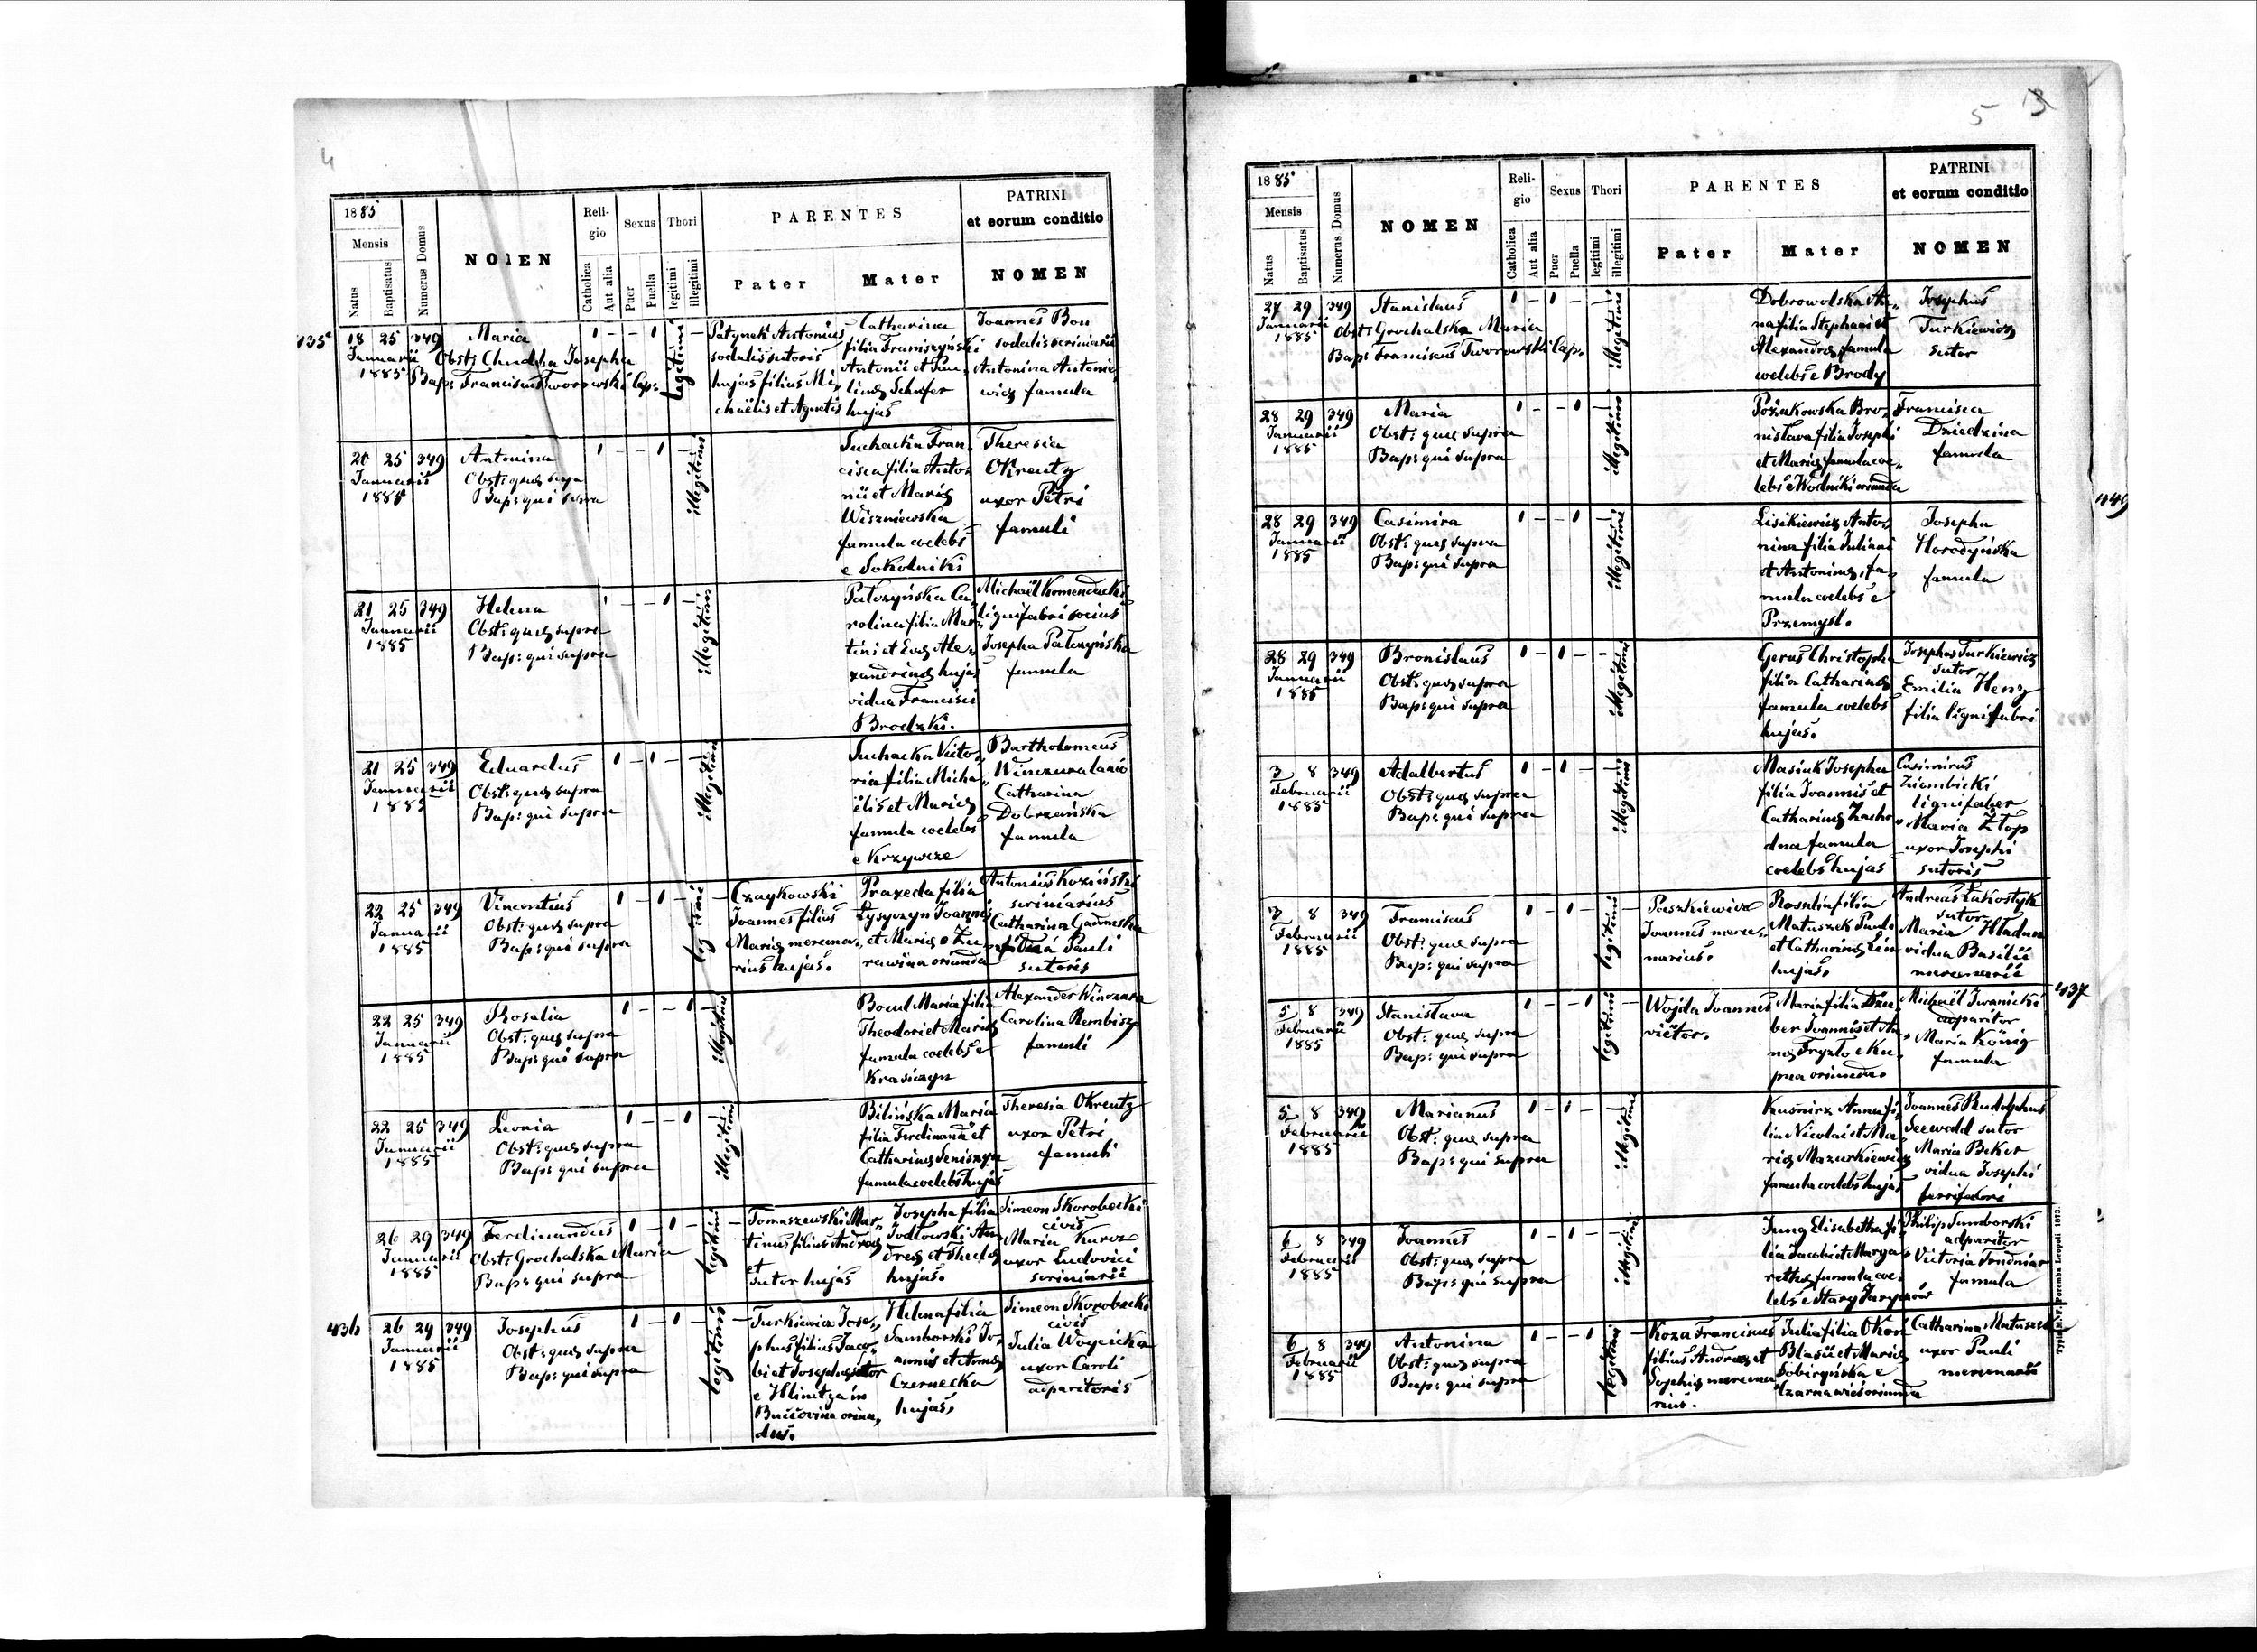 4
1885
Mensis
Natus
Baptisatus
Numerus Domus
NOMEN
Religio
Catholica
Aut alia
Sexus
Puer
Puella
Thori
legitimi
illegitimi
PARENTES
Pater
Mater
PATRINI
et eorum conditio
NOMEN
18 25 349
Januarii
1885
Maria
Obst: Chudzka Josepha
Bap: Franciscus Tworowski Cap:
legitimi
Patynek Antonius
sodalis sutoris
hujas filius Mi„
chaëlis et Agnetis
Catharina
filia Franiszyński
Antonii et Pau„
linę Schäfer
hujas
Joannes Bon
sodalis scriniarii
Antonina Antonie„
wicz famula
20 25 349
Januarii
1885
Antonina
Obst: quę supra
Bap: qui supra
illegitimi
Suchacka Fran„
cisca filia Anto„
nii et Marię
Wiszniowska
famula coelebs
e Sokolniki
Theresia
Okreutz
uxor Petri
famuli
21 25 349
Januarii
1885
Helena
Obst: quę supra
Bap: qui supra
illegitimi
Patczyńska Ca„
rolina filia Mar„
tini et Evę Ale„
xandrinę hujas
vidua Francisci
Brodzki.
Michaël Komendacki
lignifabri socius
Josepha Patczyńska
famula
21 25 349
Januarii
1885
Eduardus
Obst: quę supra
Bap: qui supra
illegitimi
Suchacka Victo„
ria filia Micha„
ëlis et Marię
famula coelebs
e Krzywcze
Bartholomeus
Winczura lanio
Catharina
Dobrzeńska
famula
22 25 349
Januarii
1885
Vincentius
Obst: quę supra
Bap: qui supra
legitimi
Czaykowski
Joannes filius
Marię mercena„
rius hujas.
Praxeda filia
Łysyczyn Joannis
et Marię e Zu„
rawina oriunda
Antonius Koziński
scriniarius
Catharina
Pauli
sutoris
22 25 349
Januarii
1885
Rosalia
Obst: quę supra
Bap: qui supra
illegitimi
Bocul Maria filia
Theodori et Marię
famula coelebs e
Krasiczyn
Alexander Winczura
Carolina Rembisz
famuli
22 25 349
Januarii
1885
Leonia
Obst: quę supra
Bap: qui supra
illegitimi
Bilińska Maria
filia Ferdinandi et
Catharinę Seniszyn
famula coelebs hujas
Theresia Okreutz
uxor Petri
famuli
26 29 349
Januarii
1885
Ferdinandus
Obst: Grochalska Maria
Bap: qui supra
legitimi
Tomaszewski Mar„
tinus filius Andreę
et
sutor hujas
Josepha filia
Jodłowski An„
dreę et Theclę
hujas.
Simeon Skorobecki
civis
Maria Kurosz
uxor Ludovici
scriniarii
436
26 29 349
Januarii
1885
Josephus
Obst: quę supra
Bap: qui supra
legitimi
Turkiewicz Jose„
phus filius Jaco„
bi et Josephę sutor
e Hlinitza in
Buccovina oriun„
dus.
Helena filia
Samborski Jo„
annis et Annę
Czernecka
hujas.
Simeon Skorobecki
civis
Julia Woycicka
uxor Caroli
adparitoris
5
1885
Mensis
Natus
Baptisatus
Numerus Domus
NOMEN
Religio
Catholica
Aut alia
Sexus
Puer
Puella
Thori
legitimi
illegitimi
PARENTES
Pater
Mater
PATRINI
et eorum conditio
NOMEN
27 29 349
Januarii
1885
Stanislaus
Obst: Grochalska Maria
Bap: Franciscus Tworowski Cap.
illegitimi
Dobrowolska An„
na filia Stephani et
Alexandrę famula
coelebs e Brody
Josephus
Turkiewicz
sutor
28 29 349
Januarii
1885
Maria
Obst: quę supra
Bap: qui supra
illegitimi
Pożakowska Bro„
nislava filia Josephi
et Marię famula coe„
lebs e Wodniki oriunda
Francisca
Dziedzina
famula
28 29 349
Januarii
1885
Casimira
Obst: quę supra
Bap: qui supra
illegitimi
Lisikiewicz Anto„
nina filia Juliani
et Antoninę, fa„
mula coelebs e
Przemysl.
Josepha
Horodyńska
famula
28 29 349
Januarii
1885
Bronislaus
Obst: quę supra
Bap: qui supra
illegitimi
Gerus Christopha
filia Catharinę
famula coelebs
hujas.
Josephus Turkiewicz
sutor
Emilia Henz
filia lignifabri
3 8 349
Februarii
1885
Adalbertus
Obst: quę supra
Bap: qui supra
illegitimi
Masiuk Josepha
filia Joannis et
Catharinę Zacho„
dna famula
coelebs hujas
Casimirus
Ziembicki
lignifaber
Maria Złop
uxor Josephi
sutoris
3 8 349
Februarii
1885
Franciscus
Obst: quę supra
Bap: qui supra
legitimi
Paszkiewicz
Joannes merce„
narius.
Rosalia filia
Matuszek Pauli
et Catharinę Lin
hujas.
Andreas Łakostyk
sutor
Maria Hladun
vidua Basilii
mercenarii
437
5 8 349
Februarii
1885
Stanislava
Obst: quę supra
Bap: qui supra
legitimi
Wojda Joannes
viëtor.
Maria filia Dzu„
ber Joannis et An„
nę Fryzlo e Ku„
pna oriunda.
Michaël Iwanicki
adparitor
Maria König
famula
5 8 349
Februarii
1885
Marianus
Obst: quę supra
Bap: qui supra
illegitimi
Kusnirz Anna fi„
lia Nicolai et Ma„
rię Mazurkiewicz
famula coelebs hujas
Joannes Rudolphus
Seewald sutor
Maria Beker
vidua Josephi
ferrifabri
6 8 349
Februarii
1885
Joannes
Obst: quę supra
Bap: qui supra
illegitimi
Jung Elisabetha fi„
lia Jacobi et Marga„
rethę famula coe„
lebs e Stary Jaryczów
Philip Samborski
adparitor
Victoria Trudniar
famula
6 8 349
Februarii
1885
Antonina
Obst: quę supra
Bap: qui supra
legitimi
Koza Franciscus
filius Andreę et
Sophię mercena„
rius.
Julia filia Okoń
Blasii et Marię
Dobiryńska e
Czarna wieś oriunda
Catharina Matuszek
uxor Pauli
mercenarii